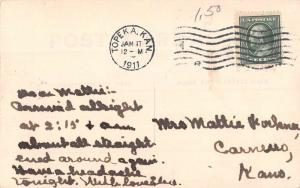 1.50
TOPEKA, KAN.
JAN 11
12-M
1911
U.S. POSTAGE
Dear Mattie:-
Arrived allright
at 2:15 & am
almost straight
ened around again.
Have a headache
tonight. With love
Mrs Mattie
Kans.